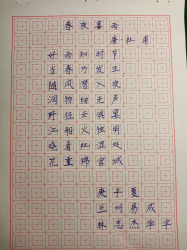 春夜喜雨
唐·杜甫
好雨知时节
当春乃发生
随风潜入夜
润物细无声
野径云俱黑
江船火独明
晓看红湿处
花重锦官城
庚子夏
兰州易成
林志杰学字